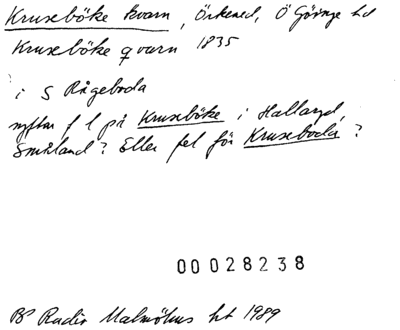 Kruseböke kvarn, Örkened, Ö Göinge hd
Kruseböke qvarn 1835
i S Rågeboda
syftar f l på Kruseböke i Hallaryd,
Småland? Eller fel för Kruseboda?
00028238
BP Radio Malmöhus ht 1989